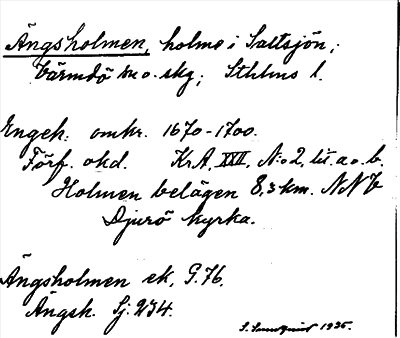 Ängsholmen, holme i Saltsjön,
Värmdö sn o. skg; Sthlms l.
Engeh: omkr. 1670-1700.
Förf. okd. KrA, XXII, N:o 2, lit. a o. b.
Holmen belägen 8,3 km. NNV
Djurö kyrka.
Ängsholmen ek, G. 76.
Ängsh. Sj: 234.
S. Lundqvist 1935.